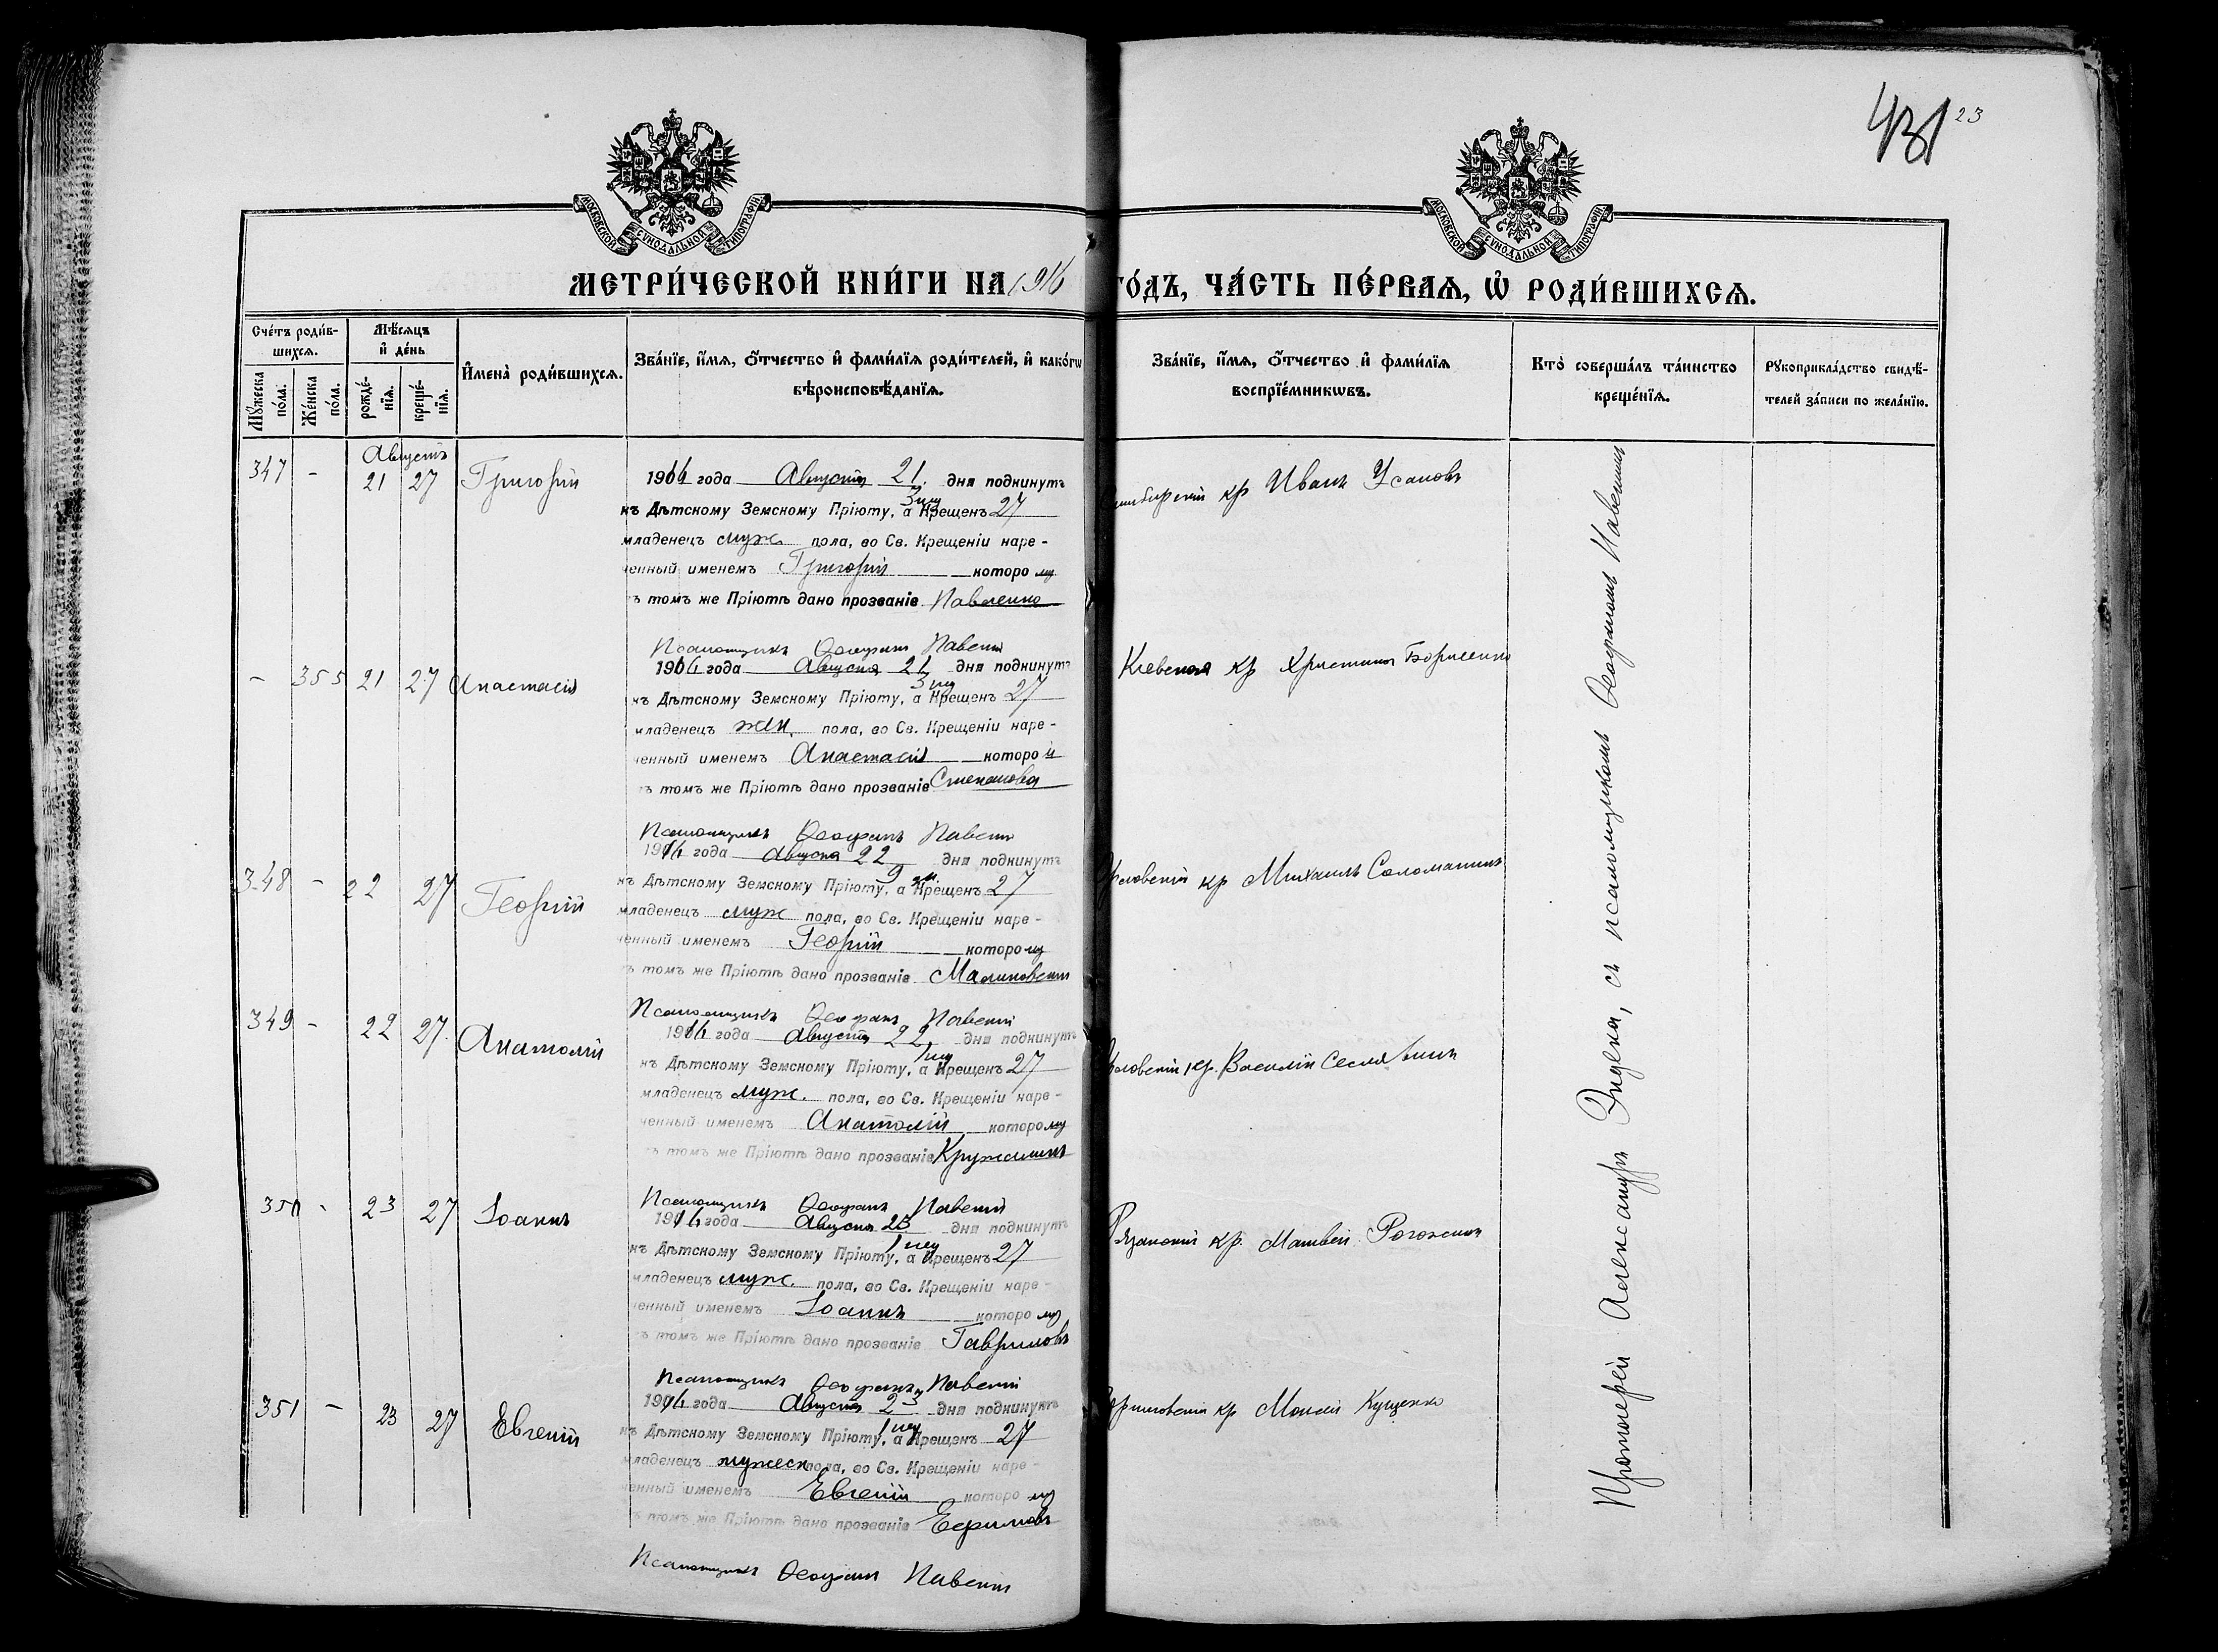 431 23
МОСКОВСКОЙ СѴНОДАЛЬНОЙ ТИПОГРАФІИ
МОСКОВСКОЙ СѴНОДАЛЬНОЙ ТИПОГРАФІИ
МЕТРИ́ЧЕСКОЙ КНИ́ГИ НА 1916 ГО́ДЪ, ЧА́СТЬ ПЕ́РВАѦ, Ѡ҆ РОДИ́ВШИХСѦ.
Сче́тъ роди́в-
шихсѧ.
Мꙋ́жеска по́ла.
Же́нска по́ла.
Мѣ́сѧцъ
и҆ де́нь
рожде́-
нїѧ.
креще́-
нїѧ.
И҆мена̀ роди́вшихсѧ.
Зва́нїе, и҆́мѧ, ѻ҆́тчество и҆ фами́лїѧ роди́телей, и҆ како́гѡ
вѣроисповѣ́данїѧ.
Зва́нїе, и҆́мѧ, ѻ҆́тчество и҆ фами́лїѧ
воспрїе́мникѡвъ.
Кто̀ соверша́лъ та́инство
креще́нїѧ.
Рꙋкоприкла́дство свидѣ́-
телей за́писи по жела́нїю.
Августъ
347 - 21 27 Григорій
1916 года Августа 21 дня подкинутъ
къ Дѣтскому Земскому Пріюту, а Крещенъ 27
младенецъ муж. пола, во Св. Крещеніи наре-
ченный именемъ Григорій которо му
въ томъ же Пріютѣ дано прозваніе Павленко
кр Иванъ Усановъ
Псаломщикъ Ѳеофанъ
- 355 21 27 Анастасія
1916 года Августа 21 дня подкинутъ
къ Дѣтскому Земскому Пріюту, а Крещенъ 27
младенецъ жен. пола, во Св. Крещеніи наре-
ченный именемъ Анастасія которо й
въ томъ же Пріютѣ дано прозваніе Степанова
Кіевская кр Христина Борисенко
Псаломщикъ Ѳеофанъ
348 - 22 27 Георгій
1916 года Августа 22 дня подкинутъ
къ Дѣтскому Земскому Пріюту, а Крещенъ 27
младенецъ муж пола, во Св. Крещеніи наре-
ченный именемъ Георгій которо му
въ томъ же Пріютѣ дано прозваніе Малиновскій
Орловскій кр Михаилъ Соломатинъ
Псаломщикъ Ѳеофанъ
349 - 22 27 Анатолій
1916 года Августа 22 дня подкинутъ
къ Дѣтскому Земскому Пріюту, а Крещенъ 27
младенецъ муж. пола, во Св. Крещеніи наре-
ченный именемъ Анатолій которо му
въ томъ же Пріютѣ дано прозваніе Кружалинъ
Орловскій кр. Василій Селявинъ
Псаломщикъ Ѳеофанъ
350 - 23 27 Іоаннъ
1916 года Августа 23 дня подкинутъ
къ Дѣтскому Земскому Пріюту, а Крещенъ 27
младенецъ муж. пола, во Св. Крещеніи наре-
ченный именемъ Іоаннъ которо му
въ томъ же Пріютѣ дано прозваніе Гавриловъ
Рязанскій кр. Матвѣй Рогожинъ
Псаломщикъ Ѳеофанъ
351 - 23 27 Евгеній
1916 года Августа 23 дня подкинутъ
къ Дѣтскому Земскому Пріюту, а Крещенъ 27
младенецъ мужеск пола, во Св. Крещеніи наре-
ченный именемъ Евгеній которо му
въ томъ же Пріютѣ дано прозваніе Ефимовъ
кр Моисей Куценко
Псаломщикъ Ѳеофанъ
Протоіерей Александръ съ псаломщикомъ Ѳеофаномъ